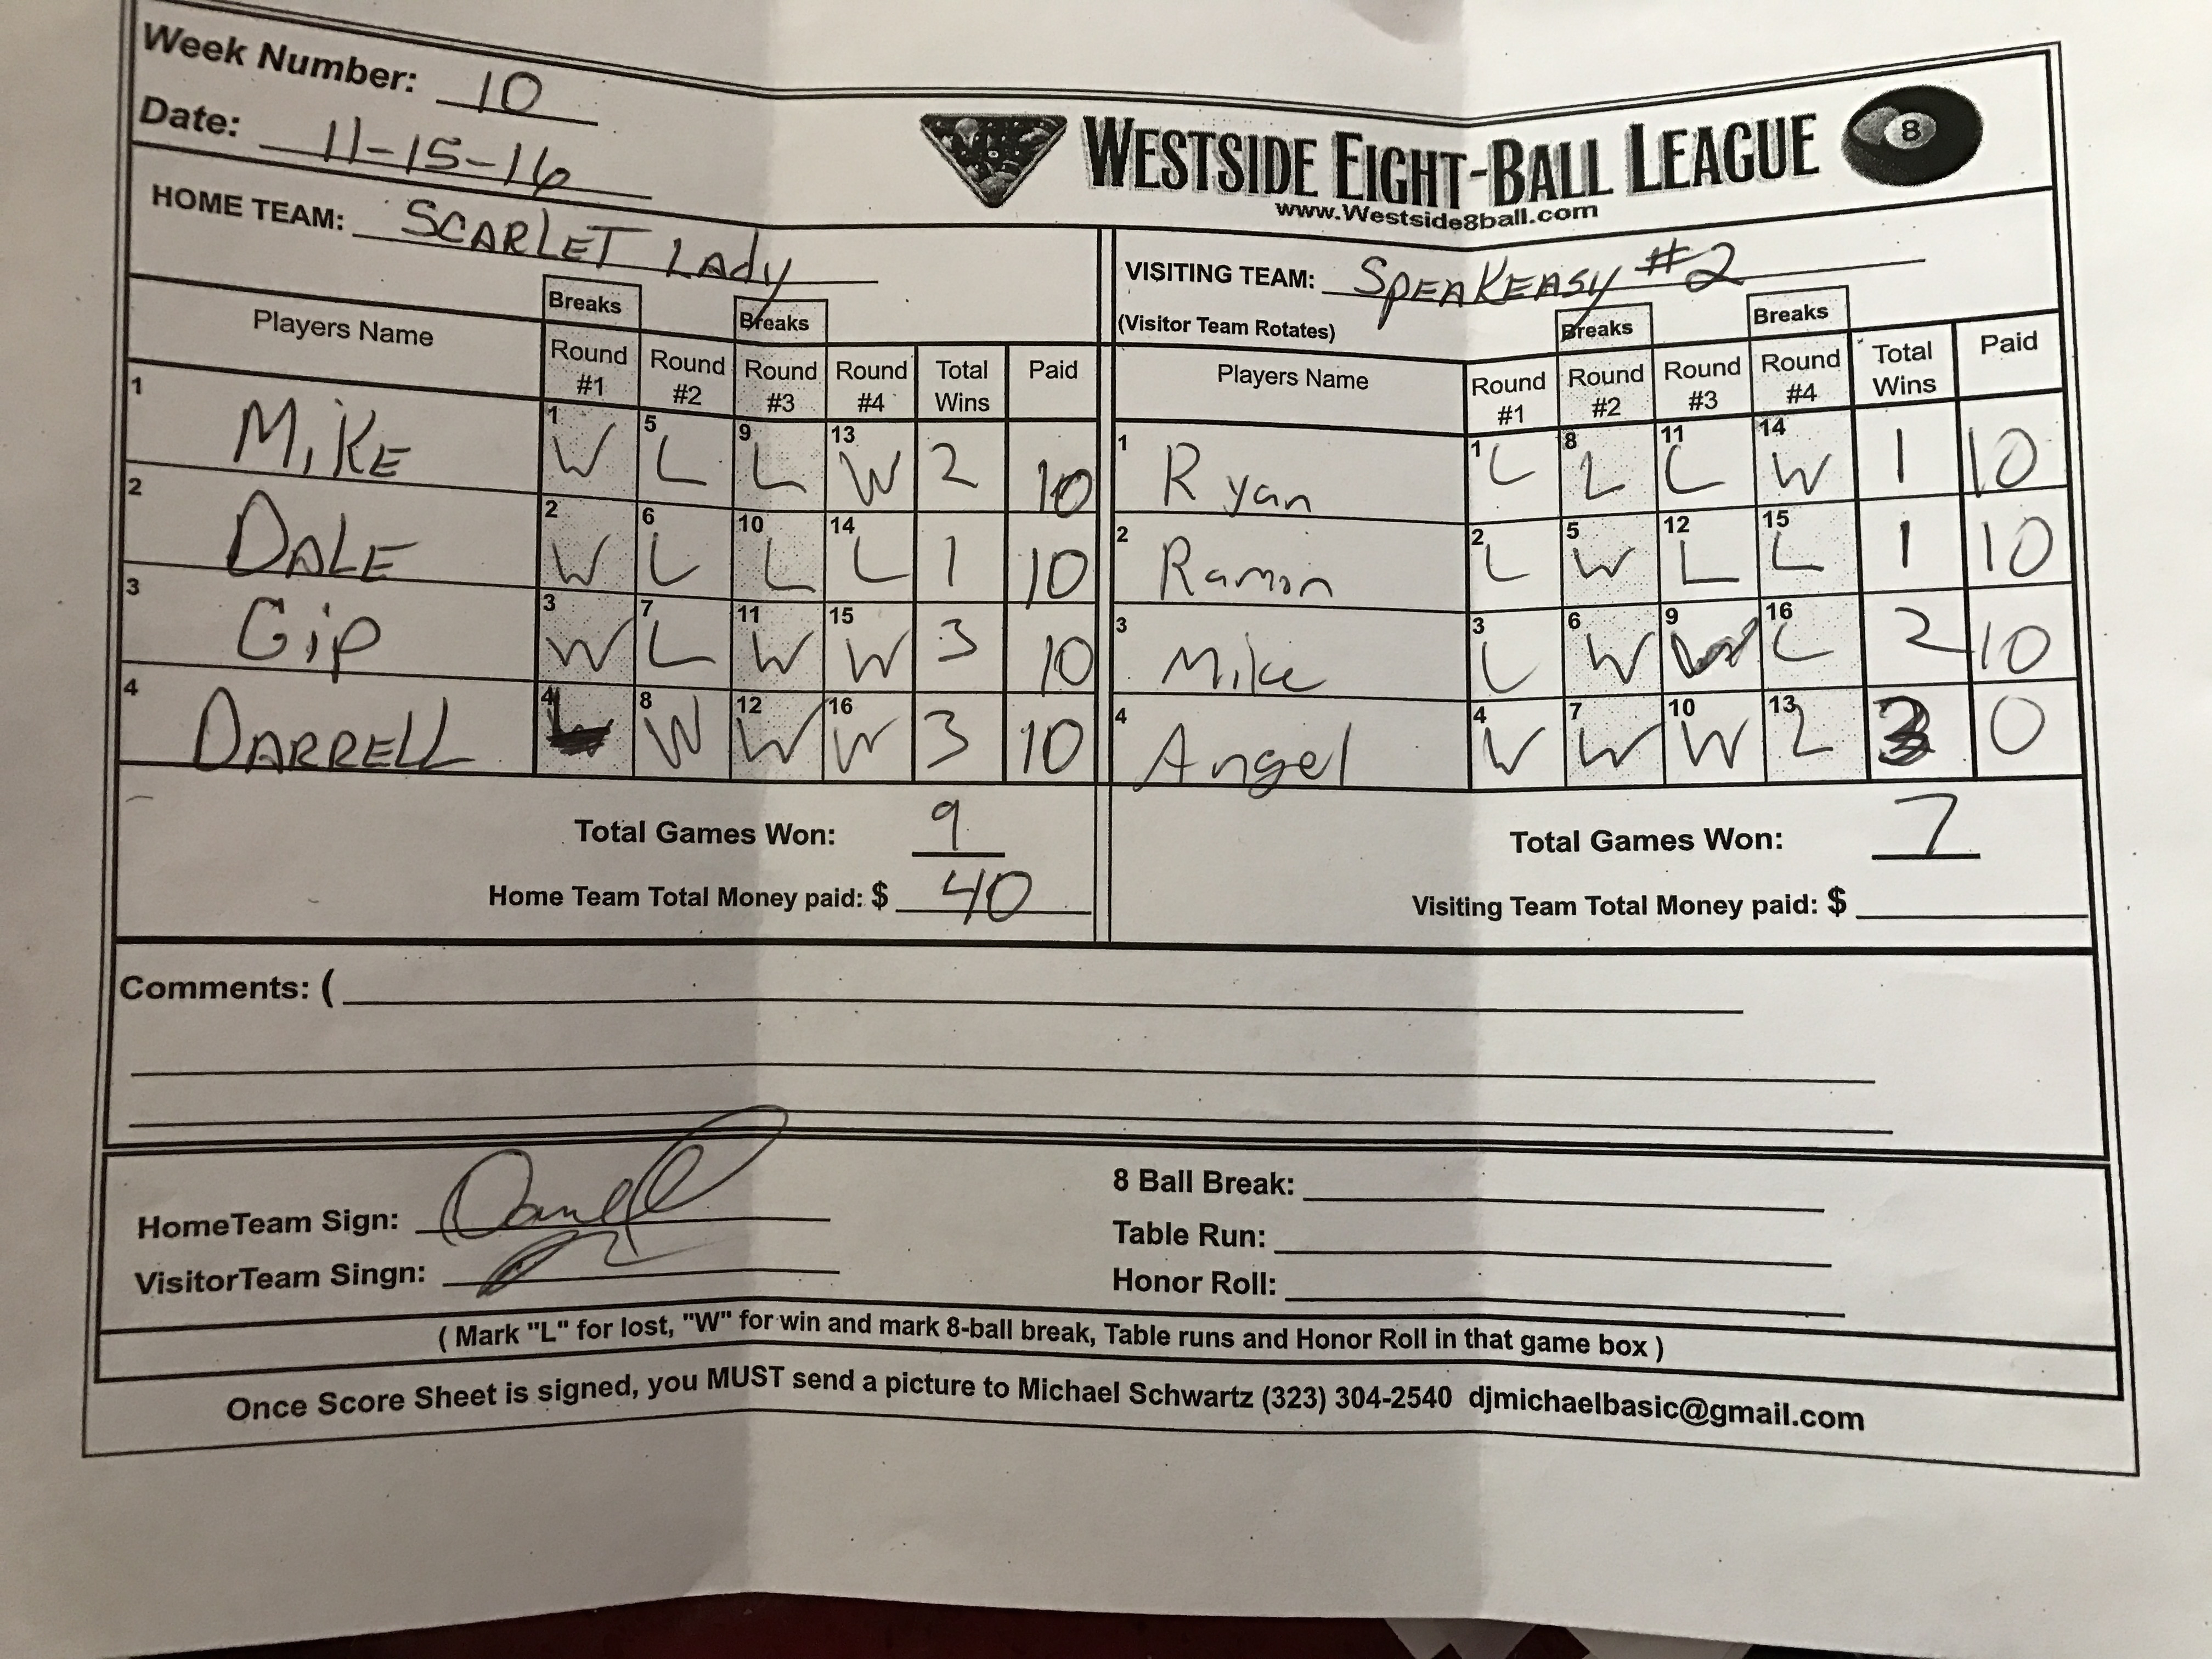 Week Number: 10
Date: 11-15-16
WESTSIDE EIGHT-BALL LEAGUE 8
www.Westside8ball.com
HOME TEAM: SCARLET LADY
VISITING TEAM: SPEAKEASY #2
(Visitor Team Rotates)
Breaks Breaks
Players Name Round #1 Round #2 Round #3 Round #4 Total Wins Paid
1 MIKE 1 W 5 L 9 L 13 W 2 10
2 DALE 2 W 6 L 10 L 14 L 1 10
3 Gip 3 W 7 L 11 W 15 W 3 10
4 DARRELL 4 L 8 W 12 W 16 W 3 10
Total Games Won: 9
Home Team Total Money paid: $ 40
Breaks Breaks
Players Name Round #1 Round #2 Round #3 Round #4 Total Wins Paid
1 Ryan 1 L 8 L 11 L 14 W 1 10
2 Ramon 2 L 5 W 12 L 15 L 1 10
3 Mike 3 L 6 W 9 W 16 L 2 10
4 Angel 4 W 7 W 10 W 13 L 3 0
Total Games Won: 7
Visiting Team Total Money paid: $
Comments: (
HomeTeam Sign: Darrell
VisitorTeam Singn:
8 Ball Break:
Table Run:
Honor Roll:
( Mark "L" for lost, "W" for win and mark 8-ball break, Table runs and Honor Roll in that game box )
Once Score Sheet is signed, you MUST send a picture to Michael Schwartz (323) 304-2540 djmichaelbasic@gmail.com